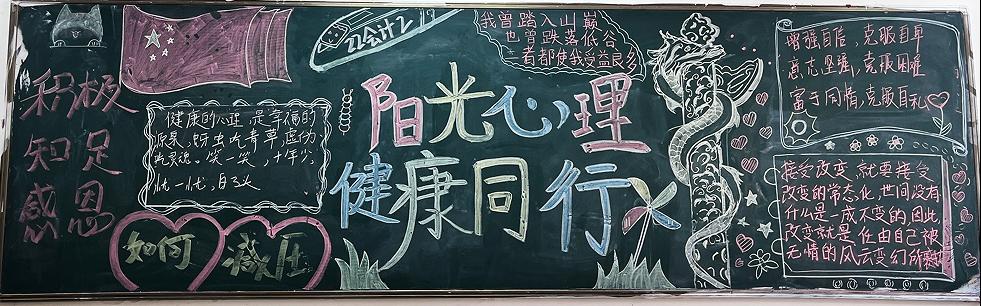 积极
知足
感恩
健康的心理是幸福的
源泉
笑一笑,十年少
愁一愁,白了头
如何
减压
22会计2
我曾踏入山巅
也曾跌落低谷
二者都使我受益良多
阳光心理
健康同行
增强自信,克服自卑
意志坚强,克服困难
富于同情,克服自私
接受改变,就要接受
改变的常态化,世间没有
什么是一成不变的因此
改变就是任由自己被
无情的风云变幻所